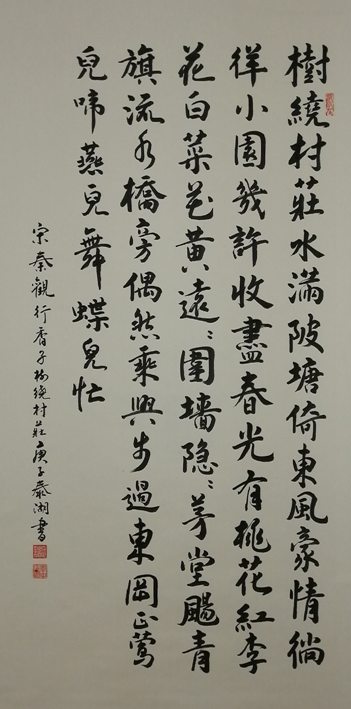 樹繞村莊水滿陂塘倚東風豪情徜
徉小園幾許收盡春光有桃花紅李
花白菜花黃遠〻圍墻隐〻茅堂颺青
旗流水橋旁偶然乘興步過東岡正鶯
兒啼燕兒舞蝶兒忙
宋秦觀行香子樹繞村莊庚子泰湖書